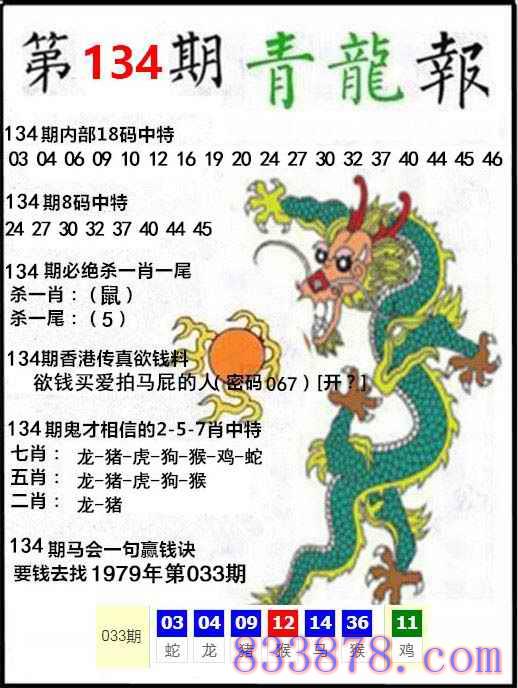 第134期青龍報
134期内部18码中特
03 04 06 09 10 12 16 19 20 24 27 30 32 37 40 44 45 46
134期8码中特
24 27 30 32 37 40 44 45
134期必绝杀一肖一尾
杀一肖：（鼠）
杀一尾：（5）
134期香港传真欲钱料
欲钱买爱拍马屁的人(密码067）[开？]
134期鬼才相信的2-5-7肖中特
七肖： 龙-猪-虎-狗-猴-鸡-蛇
五肖： 龙-猪-虎-狗-猴
二肖： 龙-猪
134期马会一句赢钱诀
要钱去找1979年第033期
033期 03 04 09 12 14 36 11
蛇 龙 猪 猴 马 猴 鸡
833878.com